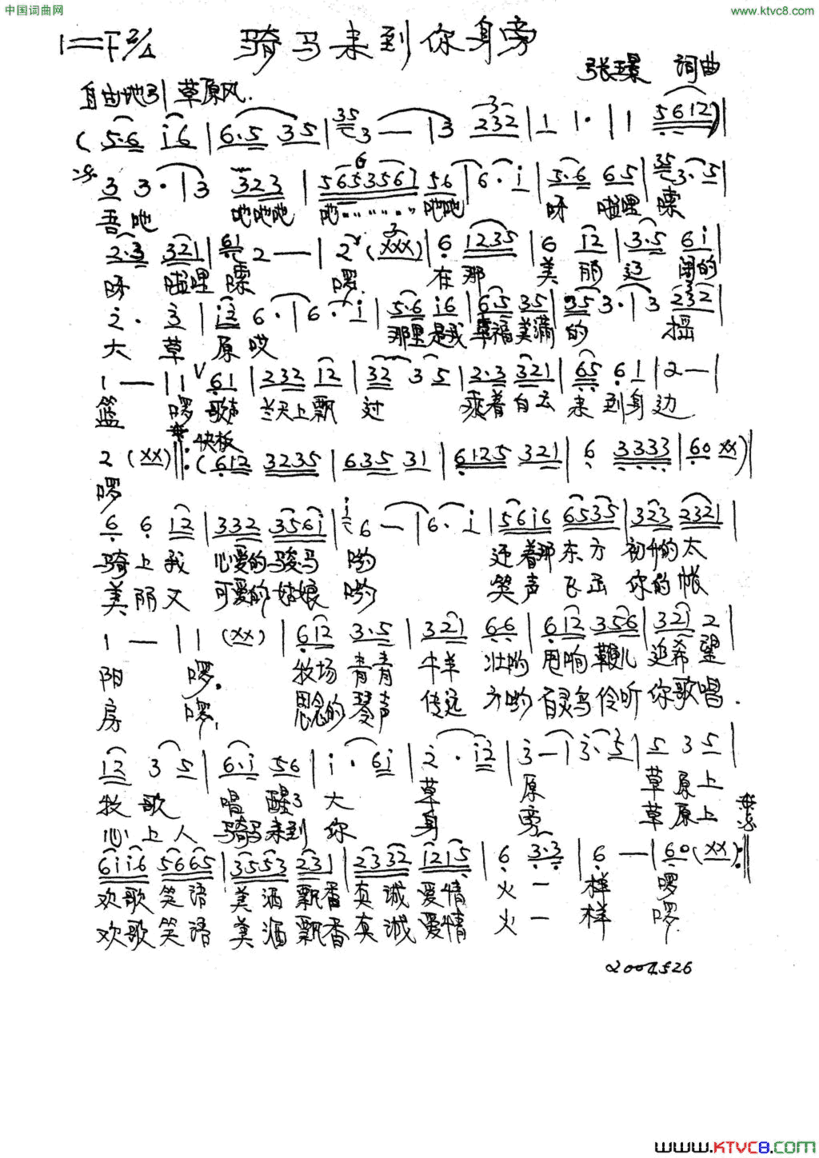 中国词曲网 www.ktvc8.com
1=F 2/4 骑马来到你身旁
张璟 词曲
自由地 草原风
(5·6 i6 | 6·5 35 | 35 3 — | 3 232 | 1 1· | 1 5612)|
3 3· | 3 323 | 5653561 56 | 6· i | 5·6 65 | 35 3·5 |
吾吔 吔吔吔 吔 吔吔 呀 啦哩
2·3 321 | 61 2 — | 2 (xxx) | 6 1235 | 6 i2 | 3·5 6i |
呀 啦哩 啰 在那 美丽辽阔的
2· 3 | i3 6· | 6· i | 5·6 i6 | 6·5 35 | 35 3· | 3 232 |
大草原哎 那里是我幸福美满的 摇
1 — | 1 61 | 232 12 | 32 3 5 | 2·3 321 | 65 6 1 | 2 — |
篮 啰 歌声 兰天上飘 过 乘着白云来到身边
快板
2 (xx) ‖: (612 3235 | 635 31 | 6125 321 | 6 3333 | 60 xx)|
啰
6 6 12 | 332 356i | i 6 — | 6· i | 56i6 6535 | 323 2321 |
骑上我 心爱的骏马 哟 迎着那东方初升的太
美丽又 可爱的姑娘 哟 笑声飞出你的帐
1 — | 1 (xx) | 612 3·5 | 321 66 | 612 356 | 321 2 |
阳 啰, 牧场青青 牛羊壮哟 甩响鞭儿追希望
房 啰, 思念的琴声 传远方哟 百灵鸟伶听你歌唱.
12 3 5 | 6·i 56 | i· 6i | 2· i2 | 3 — | 3·5 | 5 3 5 |
牧歌 唱醒了大 草 原 草原上
心上人 骑马来到你 身 旁 草原上
6ii6 5665 | 3553 231 | 2332 1215 | 6 3·3 | 6 — | 60 (xx) :‖
欢歌笑语 美酒飘香真诚爱情 火一样 啰
欢歌笑语 美酒飘香真诚爱情 火一样 啰.
www.KTVC8.com